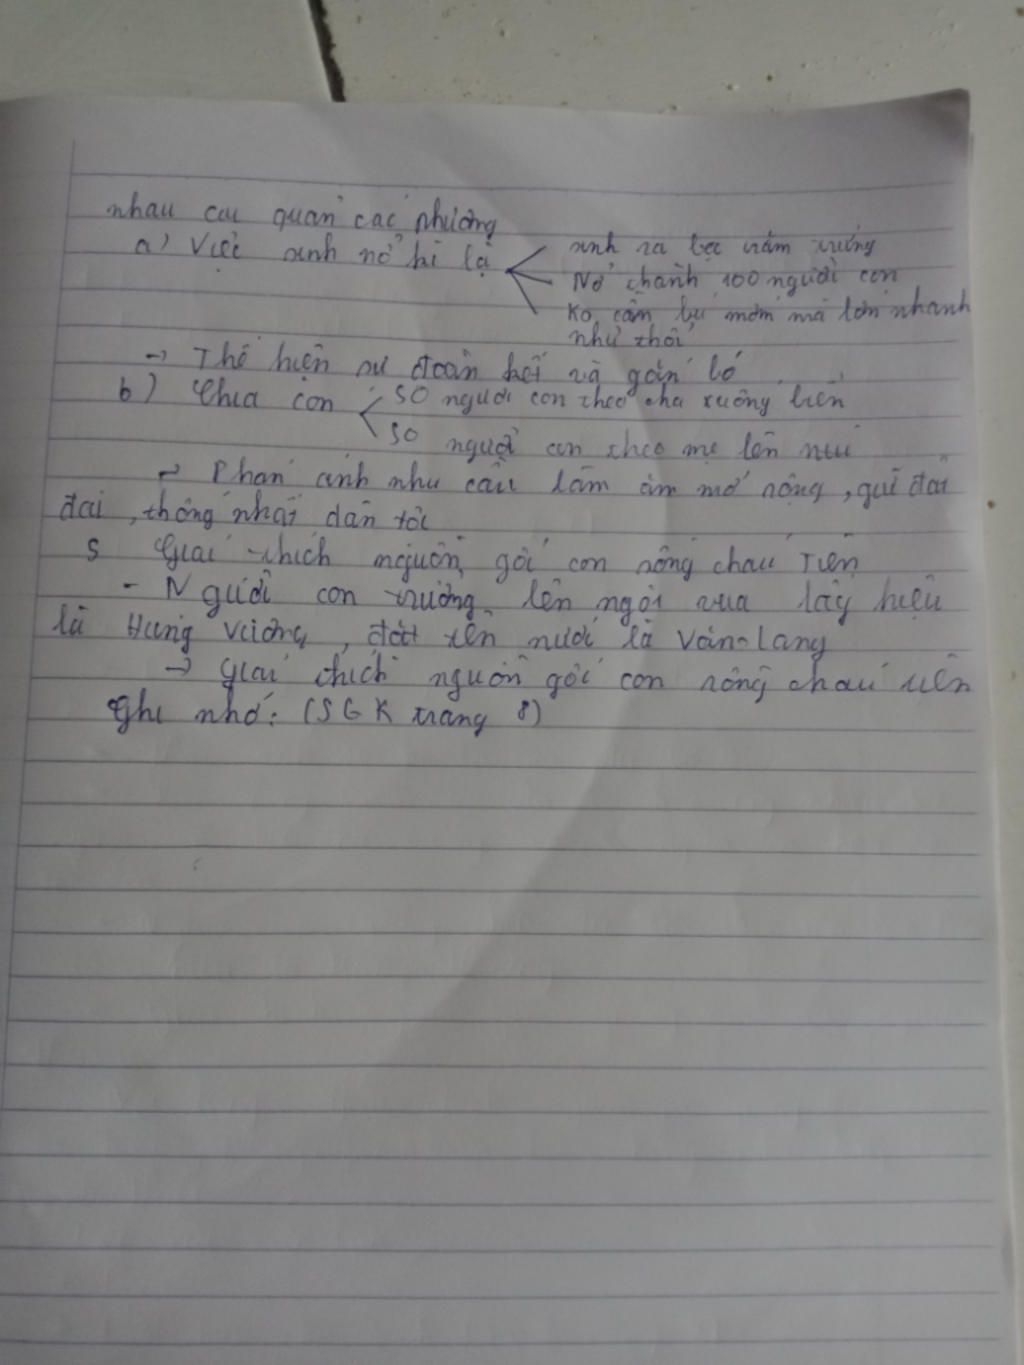 nhau cai quản các phương
a) Việc sinh nở kì lạ
sinh ra bọc trăm trứng
Nở thành 100 người con
Ko cần bú mớm mà lớn nhanh
như thổi
→ Thể hiện sự đoàn kết và gắn bó
b) Chia con
50 người con theo cha xuống biển
50 người con theo mẹ lên núi
→ Phản ánh nhu cầu làm ăn mở rộng, giữ đất
đai, thống nhất dân tộc
5 Giải thích nguồn gốc con rồng cháu Tiên
- Người con trưởng lên ngôi vua lấy hiệu
là Hùng Vương, đặt tên nước là Văn Lang
→ giải thích nguồn gốc con rồng cháu tiên
Ghi nhớ: (SGK trang 8)